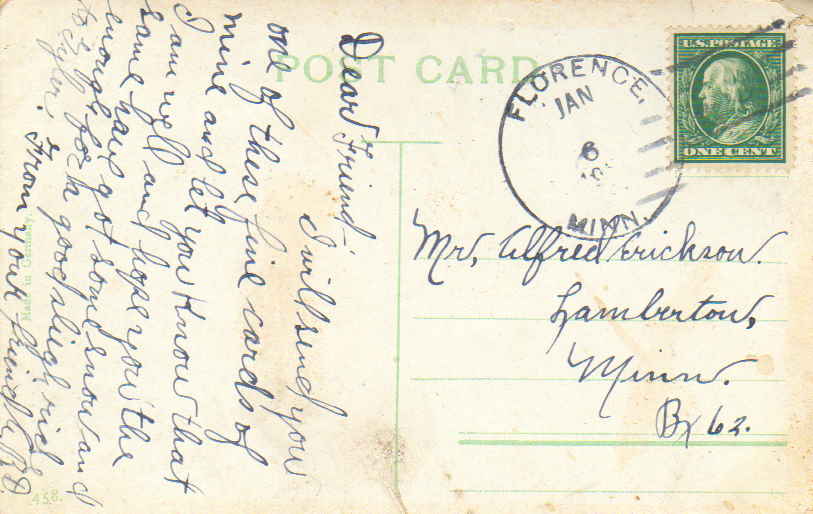 POST CARD
U.S. POSTAGE
ONE CENT
FLORENCE,
JAN
6
MINN.
Dear Friend-
I will send you
one of these fine cards of
mine and let you know that
I am well and hope you the
same have got some snow and
enough for a good sleigh ride
to Tyler.
From your friend
Mr, Alfred Erickson.
Lamberton,
Minn.
Bx 62.
Made in Germany.
458.